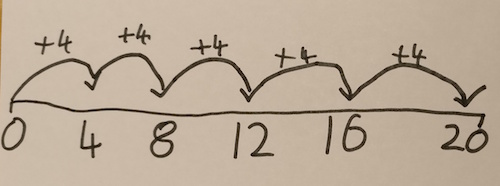 +4 +4 +4 +4 +4
0 4 8 12 16 20